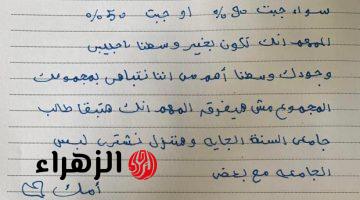 سواء جبت 90% او جبت 50%
المهم انك تكون بخير وسطنا ياحبيبى
وجودك وسطنا أهم من اننا نتباهى بمجموعك
المجموع مش هيفرق المهم انك هتبقا طالب
جامعى السنة الجايه وهننزل نشترى لبس
الجامعه مع بعض
أمك
الزهراء